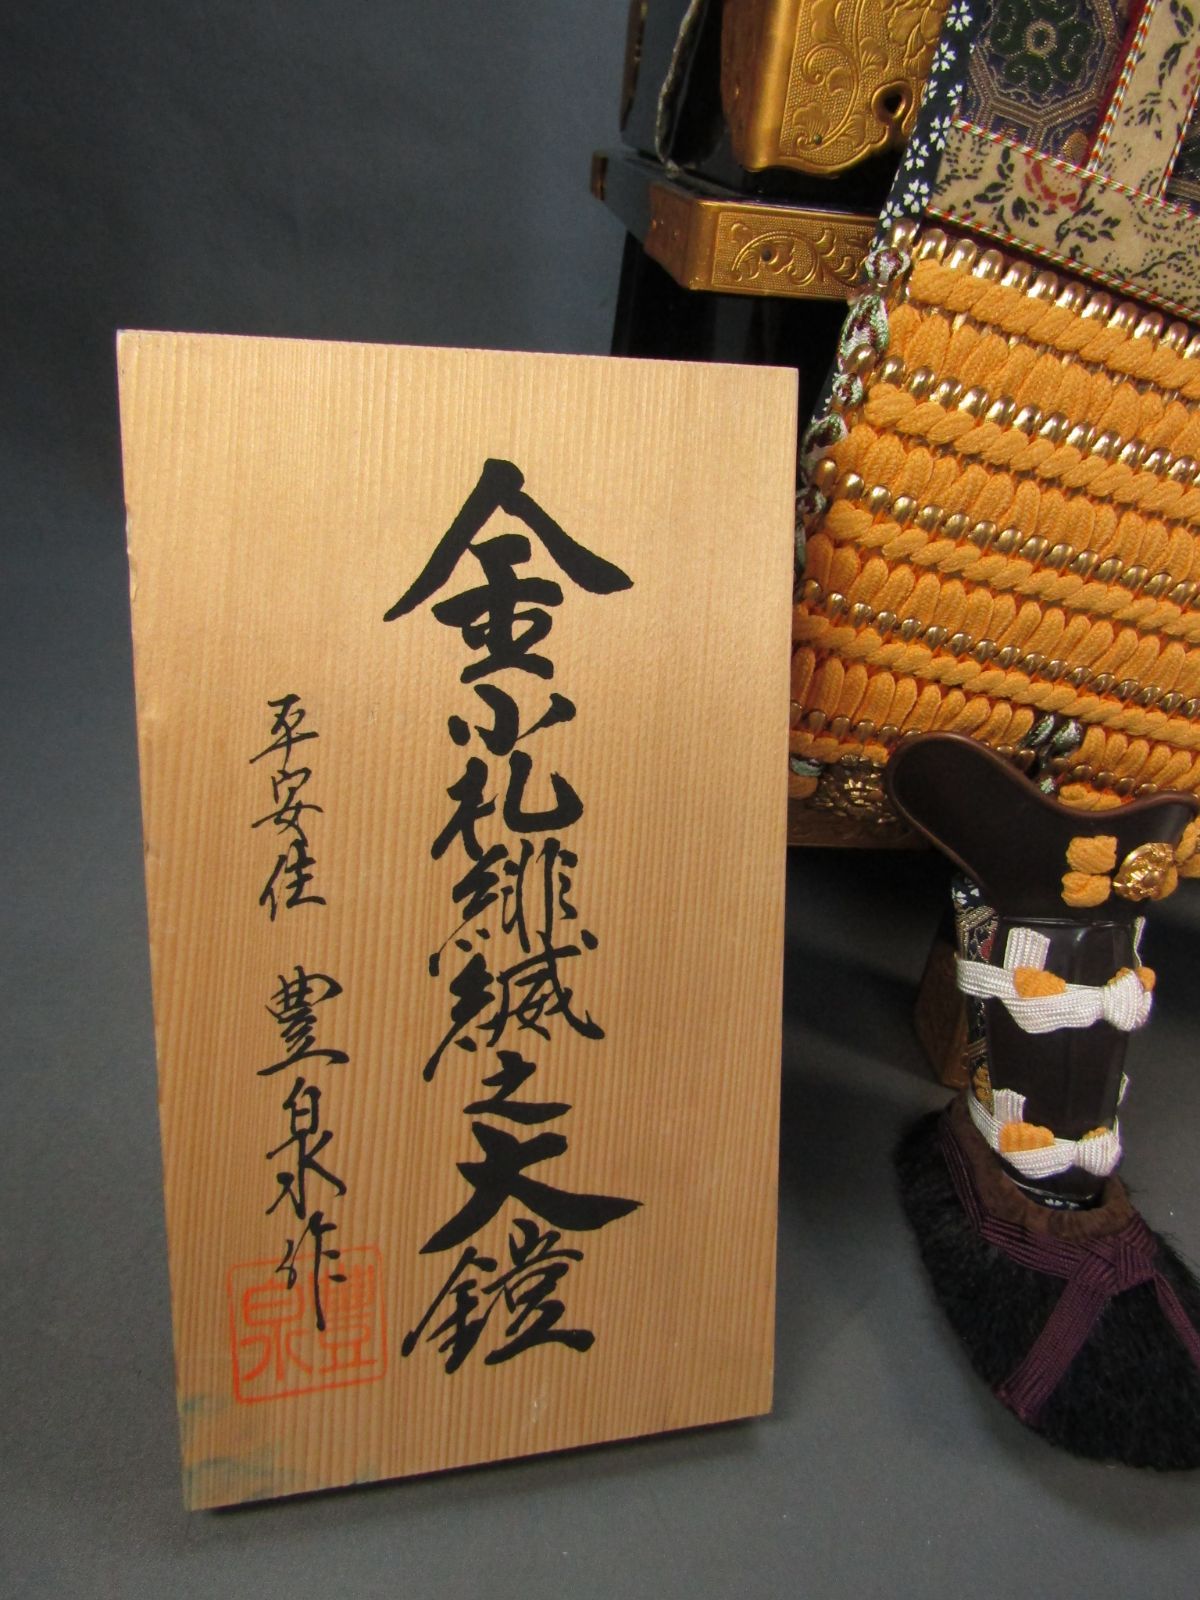 金小札緋縅之大鎧
平安住 豊泉作
豊泉